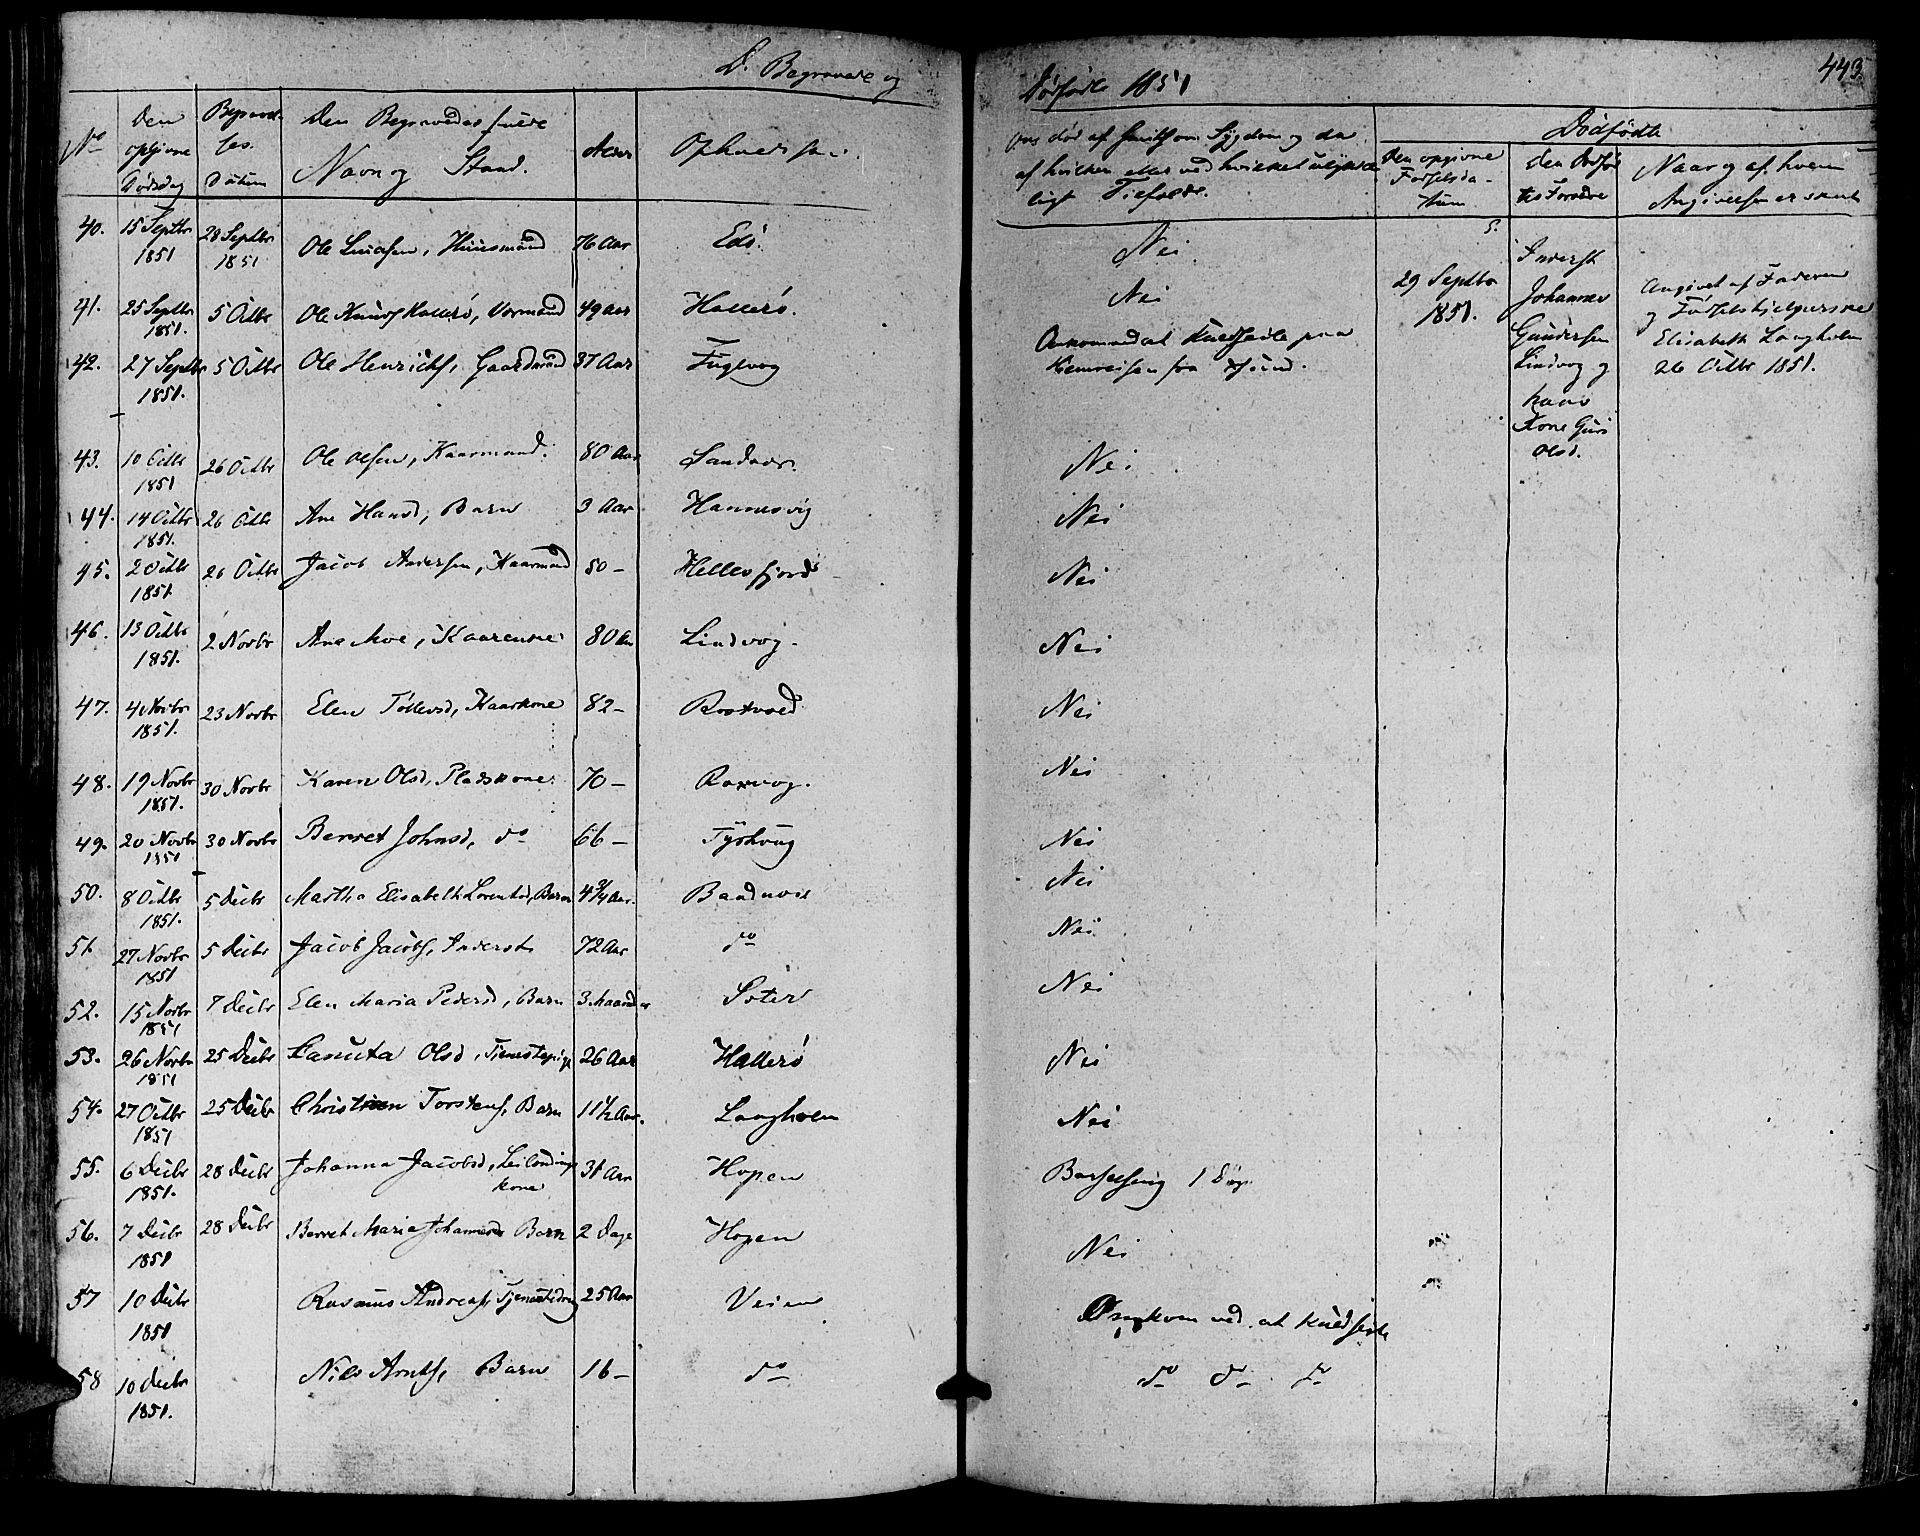 D. Begravede og Dødfødte 1851
443.
No
Den opgivne Dødsdag
Begravel-ses Datum
Den Begravedes fulde Navn og Stand.
Alder
Opholdssted
død af smitsom Sygdom og da af hvilken eller ved hvilket ulykke-ligt Tilfælde.
Dødfødte
Den opgivne Fødselsda-tum
den Dødfød-tes Forældre
Naar og af hvem Angivelsen er skeet
40. 15 Septbr 1851 28 Septbr 1851 Ole Huusmand 76 Aar Edø. Nei
41. 25 Septbr 1851. 5 Octbr Ole Knuds Hallerø, 49 Aar Hallerø. Nei
42. 27 Septbr 1851. 5 Octbr Ole Henrichs, Gaardmand 37 Aar Fuglvog Omkommed at Kuldseile paa Hjemreisen fra
43. 10 Octbr 1851 26 Octbr Ole Olsen, Kaarmand. 80 Aar Sandvær. Nei
44. 14 Octbr 1851. 26 Octbr Ane Hansd, Barn 3 Aar Hannesvig Nei
45. 2 Octbr 1851. 26 Octbr Jacob Andersen, Kaarmand 80 - Hellesfjord Nei
46. 13 Octbr 1851. 2 Novbr Ane Moe, Kaarenke 80 Aar Lindvog. Nei
47. 4 Novbr 1851. 23 Novbr Elen Tøllevsd, Kaarkone 82 - Rostvold Nei
48. 19 Novbr 1851. 30 Novbr Karen Olsd, Pladskone. 70 - Roxvog. Nei
49. 20 Novbr 1851 30 Novbr Berret Johnsd, do 66 - Tyskvug Nei
50. 8 Octbr 1851. 5 Decbr Martha Elisabeth Lorentsd, Barn 4 3/4 Aar. Baadnvis Nei
51 27 Novbr 1851 5 Decbr Jacob Jacobs, Inderst 72 Aar do Nei
52. 15 Novbr 1851 7 Decbr Elen Maria Pedersd, Barn 3 Maaneder Soter Nei
53. 26 Novbr 1851 25 Decbr Lanuta Olsd, Tjenestepige 26 Aar Hallerø Nei
54. 27 Octbr 1851 25 Decbr Christian Torstens, Barn 11 1/2 Aar. Langholm Nei
55. 6 Decbr 1851. 28 Decbr Johanna Jacobsd, Leilændings kone 31 Aar Hopen Barselseng
56. 7 Decbr 1851 28 Decbr Berret Maria Johannesd Barn 2 Dage Hopen Nei
57 10 Decbr 1851 Rasmus Andreas, Tjenestedreng 25 Aar Veien Omkom ved at Kuldseile
58 10 Decbr 1851. Nils Arnts, Barn 16 - do do do do
5.
29 Septbr 1851.
Inderst Johannes Gundersen Lindvog og hans Kone Guri Olsd.
Angivet af Faderen og Fødselshjelperske Elisabeth Langholm 26 Octbr 1851.